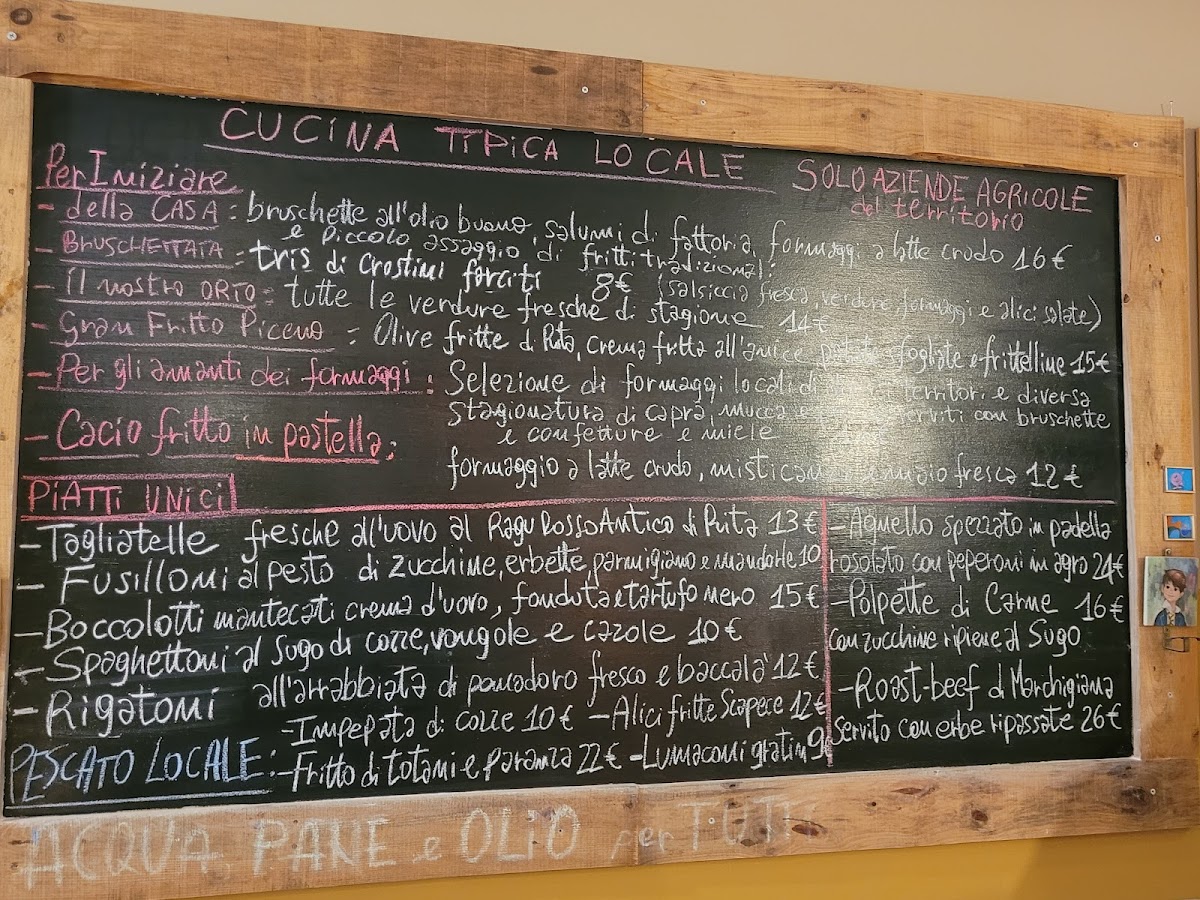 CUCINA TIPICA LOCALE
SOLO AZIENDE AGRICOLE
del territorio
Per Iniziare
- della CASA : bruschette all'olio buono, salumi di fattoria, formaggi a latte crudo 16 €
e piccolo assaggio di fritti tradizionali
- BRUSCHETTATA = tris di Crostini farciti 8€ (salsiccia fresca, verdure, formaggi e alici salate)
- Il nostro ORTO = tutte le verdure fresche di stagione 14€
- Gran Fritto Piceno = Olive fritte di Rita, crema fritta all'anice, sfogliate e frittelline 15€
- Per gli amanti dei formaggi : Selezione di formaggi locali di territori e diversa
stagionatura di capra, mucca e serviti con bruschette
e confetture e miele
- Cacio fritto in pastella :
formaggio a latte crudo, fresca 12 €
PIATTI UNICI
- Tagliatelle fresche all'uovo al Ragù Rosso Antico di Rita 13 €
- Fusilloni al pesto di zucchine, erbette, parmigiano e mandorle 10
- Boccolotti mantecati crema d'uovo, fonduta e tartufo nero 15 €
- Spaghettoni al Sugo di cozze, vongole e cazole 10 €
- Rigatoni all'arrabbiata di pomodoro fresco e baccalà 12 €
- Agnello spezzato in padella
rosolato con peperoni in agro 24€
- Polpette di Carne 16 €
con zucchine ripiene al Sugo
- Roast-beef di Marchigiana
servito con erbe ripassate 26 €
PESCATO LOCALE :
- Impepata di cozze 10 € - Alici fritte Scapece 12 €
- Fritto di totani e paranza 22 € - Lumaconi gratin 9
ACQUA, PANE e OLIO per TUTTI